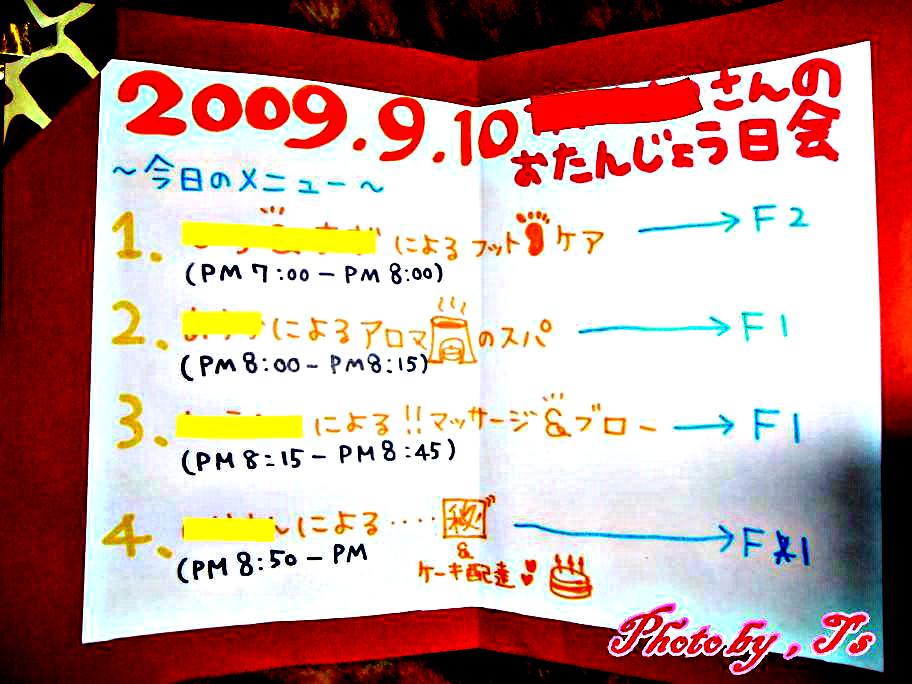 2009.9.10 さんの
おたんじょう日会
~今日のメニュー~
1. によるフットケア → F2
(PM 7:00 - PM 8:00)
2. によるアロマのスパ → F1
(PM 8:00 - PM 8:15)
3. による!!マッサージ&ブロー → F1
(PM 8:15 - PM 8:45)
4. による‥‥秘 → F1
(PM 8:50 - PM
&
ケーキ配達
Photo by , T's